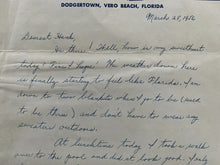 DODGERTOWN, VERO BEACH, FLORIDA
March 28, 1956
Dearest Hank,
Hi there! Well, how is my sweetheart
today? Fine I hope! The weather down here
is finally starting to feel like Florida. I am
down to two blankets when I go to bed (used
to be three) and don't have to wear my
sweater outdoors.
At lunchtime today I took a walk
over to the pool and did it look good. Just